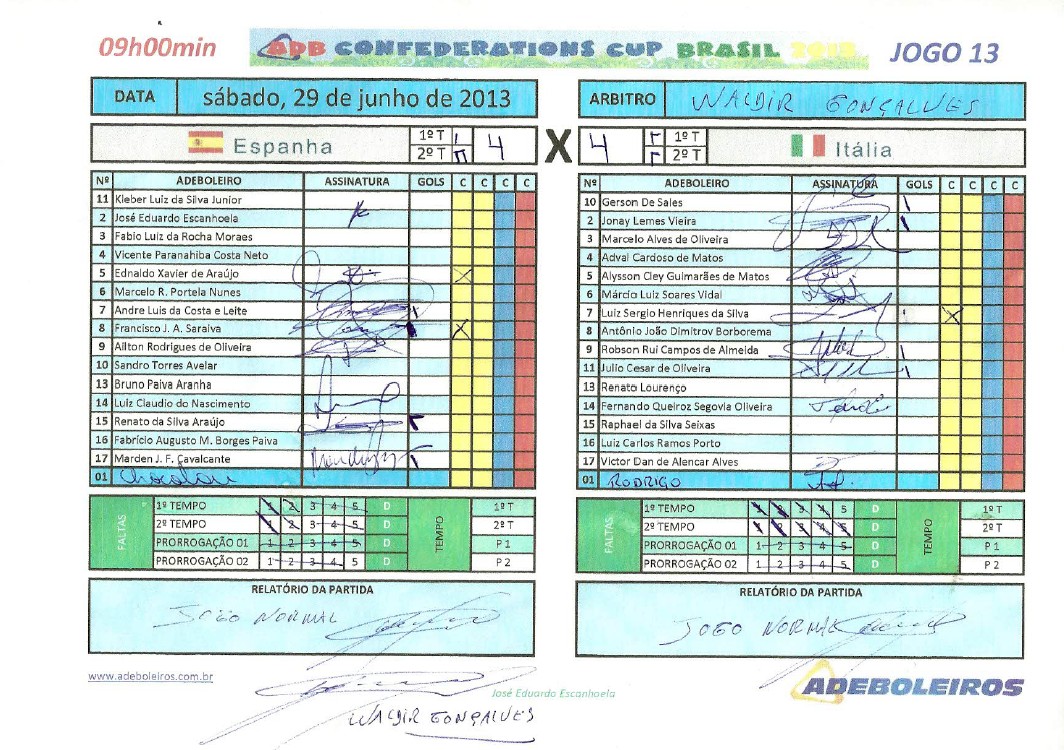 09h00min ADB CONFEDERATIONS CUP BRASIL 2013 JOGO 13
DATA sábado, 29 de junho de 2013 ARBITRO WALDIR GONÇALVES
Espanha 1º T 2º T 4 X 4 1º T 2º T Itália
Nº ADEBOLEIRO ASSINATURA GOLS C C C C
11 Kleber Luiz da Silva Junior
2 José Eduardo Escanhoela
3 Fabio Luiz da Rocha Moraes
4 Vicente Paranahiba Costa Neto
5 Ednaldo Xavier de Araújo
6 Marcelo R. Portela Nunes
7 Andre Luis da Costa e Leite
8 Francisco J. A. Saraiva
9 Ailton Rodrigues de Oliveira
10 Sandro Torres Avelar
13 Bruno Paiva Aranha
14 Luiz Claudio do Nascimento
15 Renato da Silva Araújo
16 Fabrício Augusto M. Borges Paiva
17 Marden J. F. Cavalcante
01
Nº ADEBOLEIRO ASSINATURA GOLS C C C C
10 Gerson De Sales
2 Jonay Lemes Vieira
3 Marcelo Alves de Oliveira
4 Adval Cardoso de Matos
5 Alysson Cley Guimarães de Matos
6 Márcio Luiz Soares Vidal
7 Luiz Sergio Henriques da Silva
8 Antônio João Dimitrov Borborema
9 Robson Rui Campos de Almeida
11 Julio Cesar de Oliveira
13 Renato Lourenço
14 Fernando Queiroz Segovia Oliveira
15 Raphael da Silva Seixas
16 Luiz Carlos Ramos Porto
17 Victor Dan de Alencar Alves
01 RODRIGO
FALTAS
1º TEMPO 1 2 3 4 5 D
2º TEMPO 1 2 3 4 5 D
PRORROGAÇÃO 01 1 2 3 4 5 D
PRORROGAÇÃO 02 1 2 3 4 5 D
TEMPO
1º T
2º T
P 1
P 2
FALTAS
1º TEMPO 1 2 3 4 5 D
2º TEMPO 1 2 3 4 5 D
PRORROGAÇÃO 01 1 2 3 4 5 D
PRORROGAÇÃO 02 1 2 3 4 5 D
TEMPO
1º T
2º T
P 1
P 2
RELATÓRIO DA PARTIDA
JOGO NORMAL
RELATÓRIO DA PARTIDA
JOGO NORMAL
www.adeboleiros.com.br
José Eduardo Escanhoela
ADEBOLEIROS
WALDIR GONÇALVES